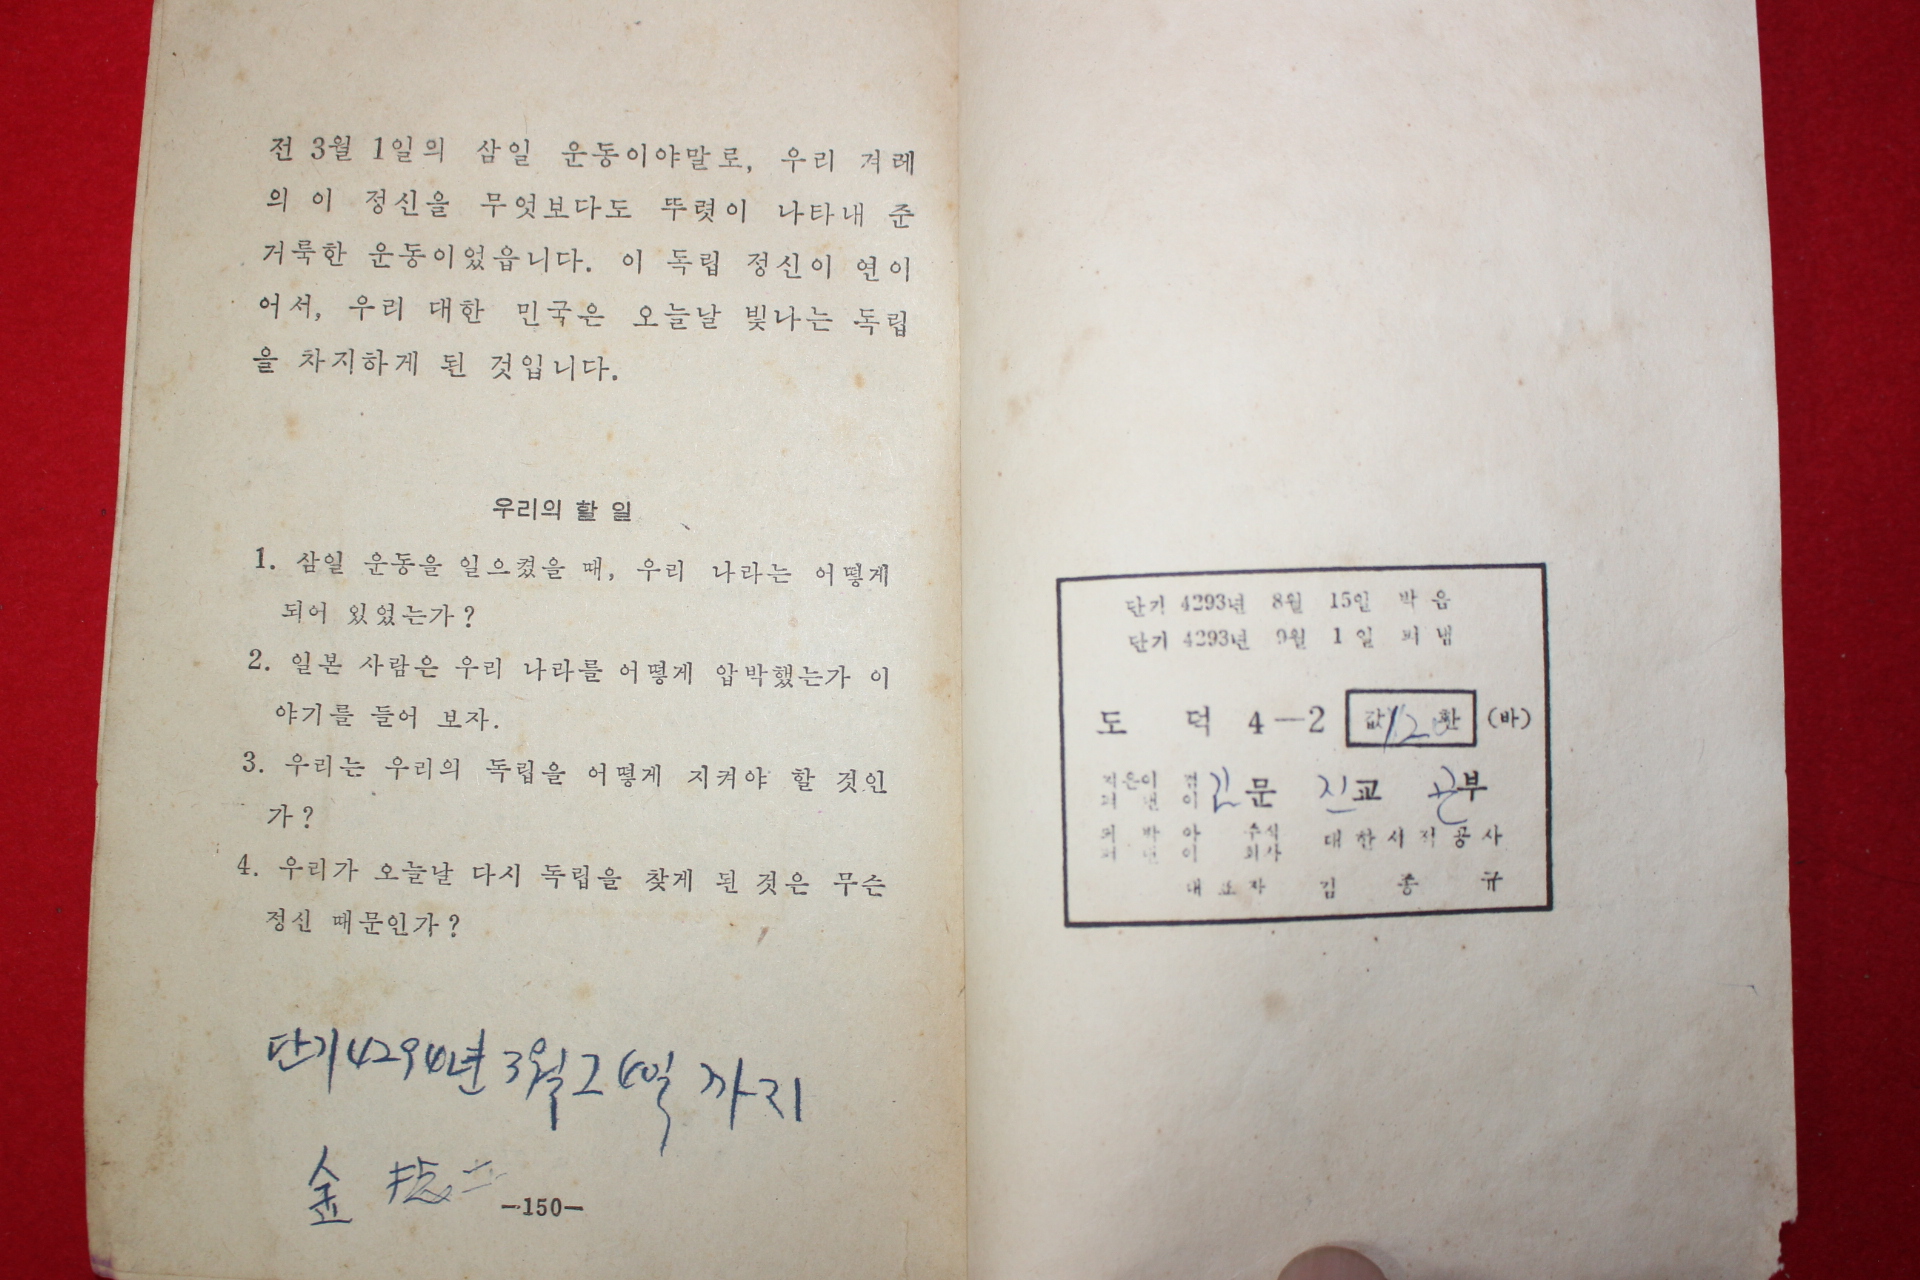 전 3월 1일의 삼일 운동이야말로, 우리 겨레
의 이 정신을 무엇보다도 뚜렷이 나타내 준
거룩한 운동이었읍니다. 이 독립 정신이 연이
어서, 우리 대한 민국은 오늘날 빛나는 독립
을 차지하게 된 것입니다.
우리의 할 일
1. 삼일 운동을 일으켰을 때, 우리 나라는 어떻게
되어 있었는가?
2. 일본 사람은 우리 나라를 어떻게 압박했는가 이
야기를 들어 보자.
3. 우리는 우리의 독립을 어떻게 지켜야 할 것인
가?
4. 우리가 오늘날 다시 독립을 찾게 된 것은 무슨
정신 때문인가?
단기 4294년 3월 24일 까지
金
—150—
단기 4293년 8월 15일 박음
단기 4293년 9월 1일 펴냄
도 덕 4—2 값 환 (바)
지은이 겸
펴낸이 문 교 부
박아 주식
펴낸이 회사 대한서적공사
대표자 김 종 규